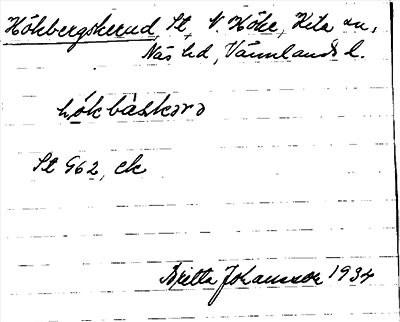 Hökbergskerud, St, N. Höke, Kila sn,
Näs hd, Värmlands l.
hökbàskərə
St G62, ek
Britta Johansson 1934